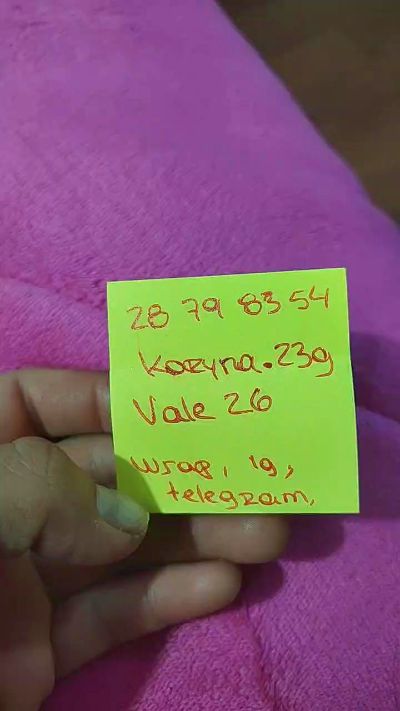 28 79 83 54
Kozyna.23g
Vale 26
wsap, ig,
telegram,